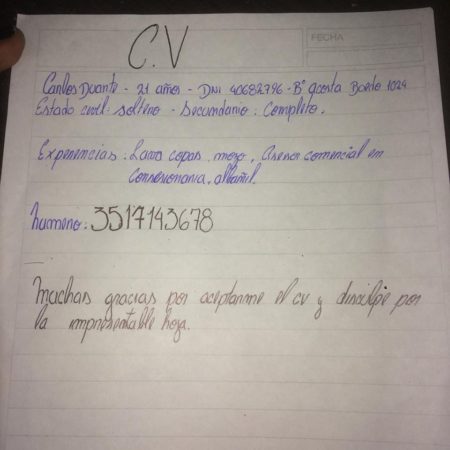 FECHA
C.V
Carlos Duarte - 21 años - DNI 40682796 - Bº Acosta Boedo 1024
Estado civil: soltero - Secundario: Completo.
Experiencias: Lava copas. mozo, Asesor comercial en
Consesionaria. albañil.
numero: 3517143678
Muchas gracias por aceptarme el CV y disculpe por
la impresentable hoja.